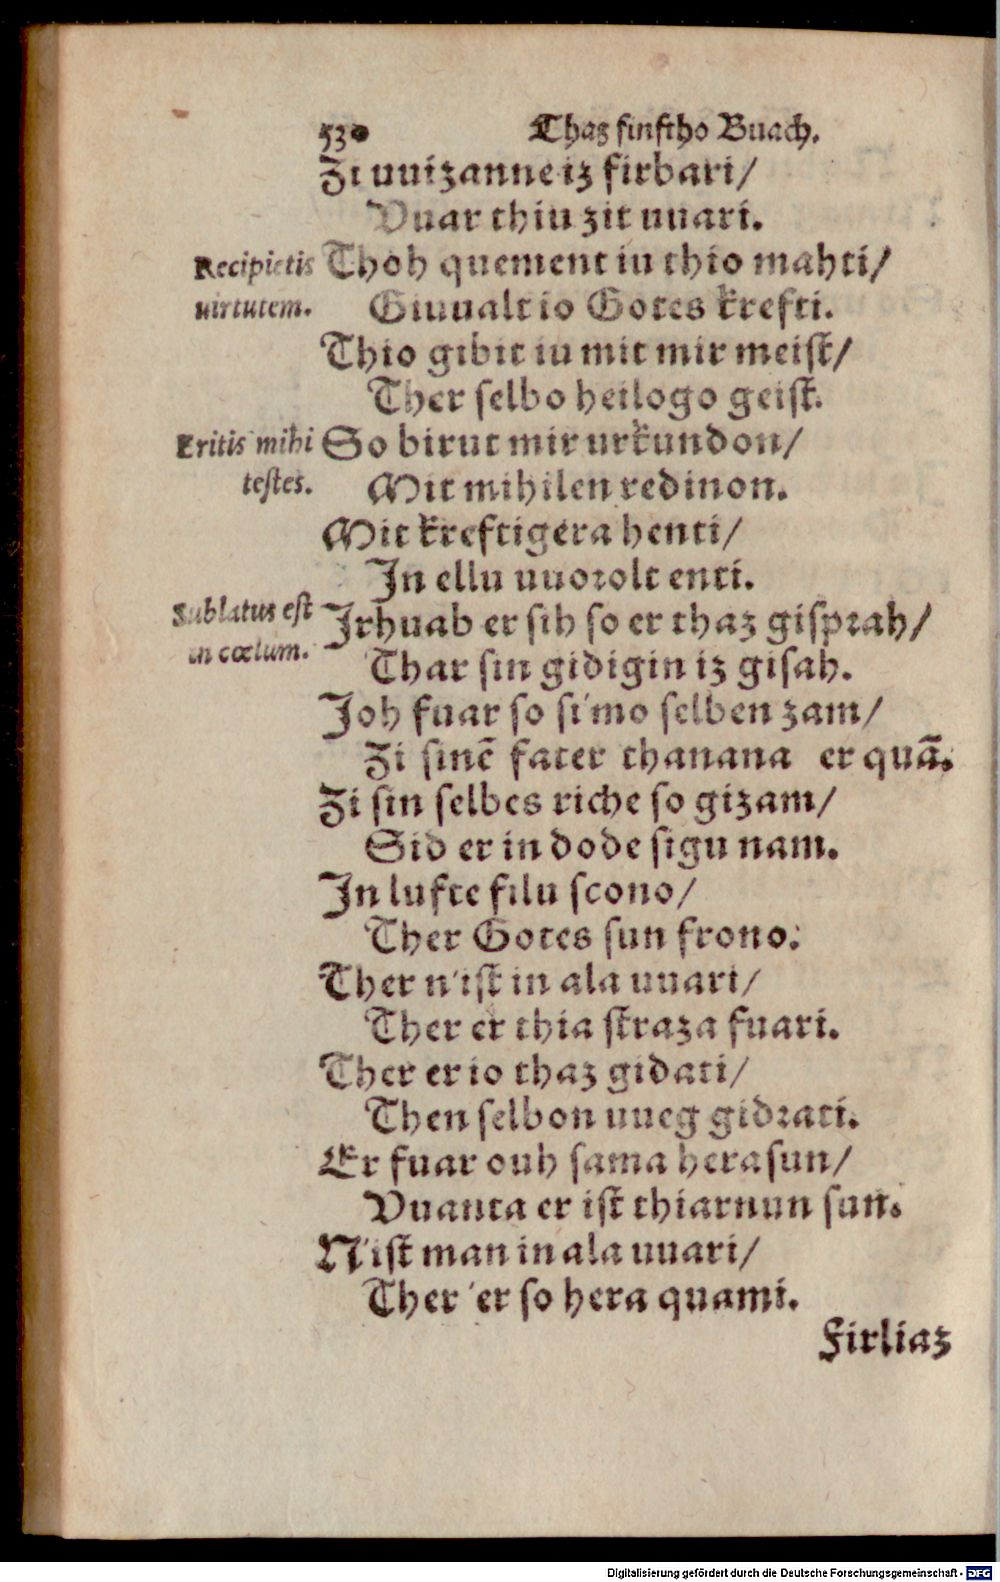 530 Thaz finftho Buach.
Zi uuizanne iz firbari/
Vuar thiu zit uuari.
Recipietis
uirtutem.
Thoh quement iu thio mahti/
Giuualt io Gotes krefti.
Thio gibit iu mit mir meiſt/
Ther ſelbo heilogo geiſt.
Eritis mihi
teſtes.
So birut mir urkundon/
Mit mihilen redinon.
Mit kreftigera henti/
In ellu uuorolt enti.
Sublatus eſt
in cœlum.
Irhuab er ſih ſo er thaz giſprah/
Thar ſin gidigin iz giſah.
Joh fuar ſo ſi'mo ſelben zam/
Zi ſinē fater thanana er quā.
Zi ſin ſelbes riche ſo gizam/
Sid er in dode ſigu nam.
In lufte filu ſcono/
Ther Gotes ſun frono.
Ther n'iſt in ala uuari/
Ther er thia ſtraza fuari.
Ther er io thaz gidati/
Then ſelbon uueg gidrati.
Er fuar ouh ſama heraſun/
Vuanta er iſt thiarnun ſun.
N'iſt man in ala uuari/
Ther er ſo hera quami.
Firliaz
Digitalisierung gefördert durch die Deutsche Forschungsgemeinschaft - DFG